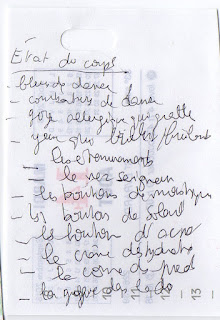 Etat du corps
- bleus de danse
- courbatures de danse
- gorge allergique qui gratte
- yeux qui brûlent
- les éternuements
- le nez saignem
- les boutons de moustique
- les boutons de soleil
- le bouton d'acné
- le crâne déshydraté
- la corne des pieds
- la dos
10
11
12
13